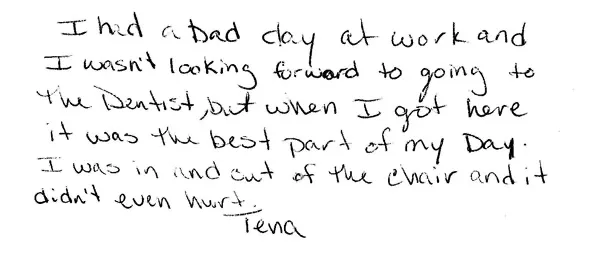 I had a bad day at work and
I wasn't looking forward to going to
the Dentist, but when I got here
it was the best part of my Day.
I was in and out of the chair and it
didn't even hurt.
Tena